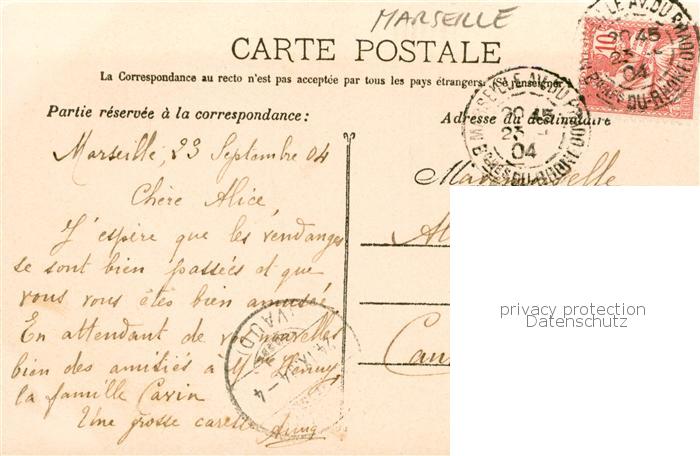 MARSEILLE
CARTE POSTALE
La Correspondance au recto n'est pas acceptée par tous les pays étrangers. (Se renseigner
Partie réservée à la correspondance :
Adresse du destinataire
MARSEILLE AV. DU PRADO
20 45
23
04
BCHES-DU-RHONE
10
Marseille, 23 Septembre 04
Chère Alice,
J'espère que les vendanges
se sont bien passées et que
vous vous êtes bien amusé
En attendant de vos nouvelles
bien des amitiés à
la famille
Une grosse caresse
Mademoiselle
(VAUD)
24 IX 04 - 4
privacy protection
Datenschutz